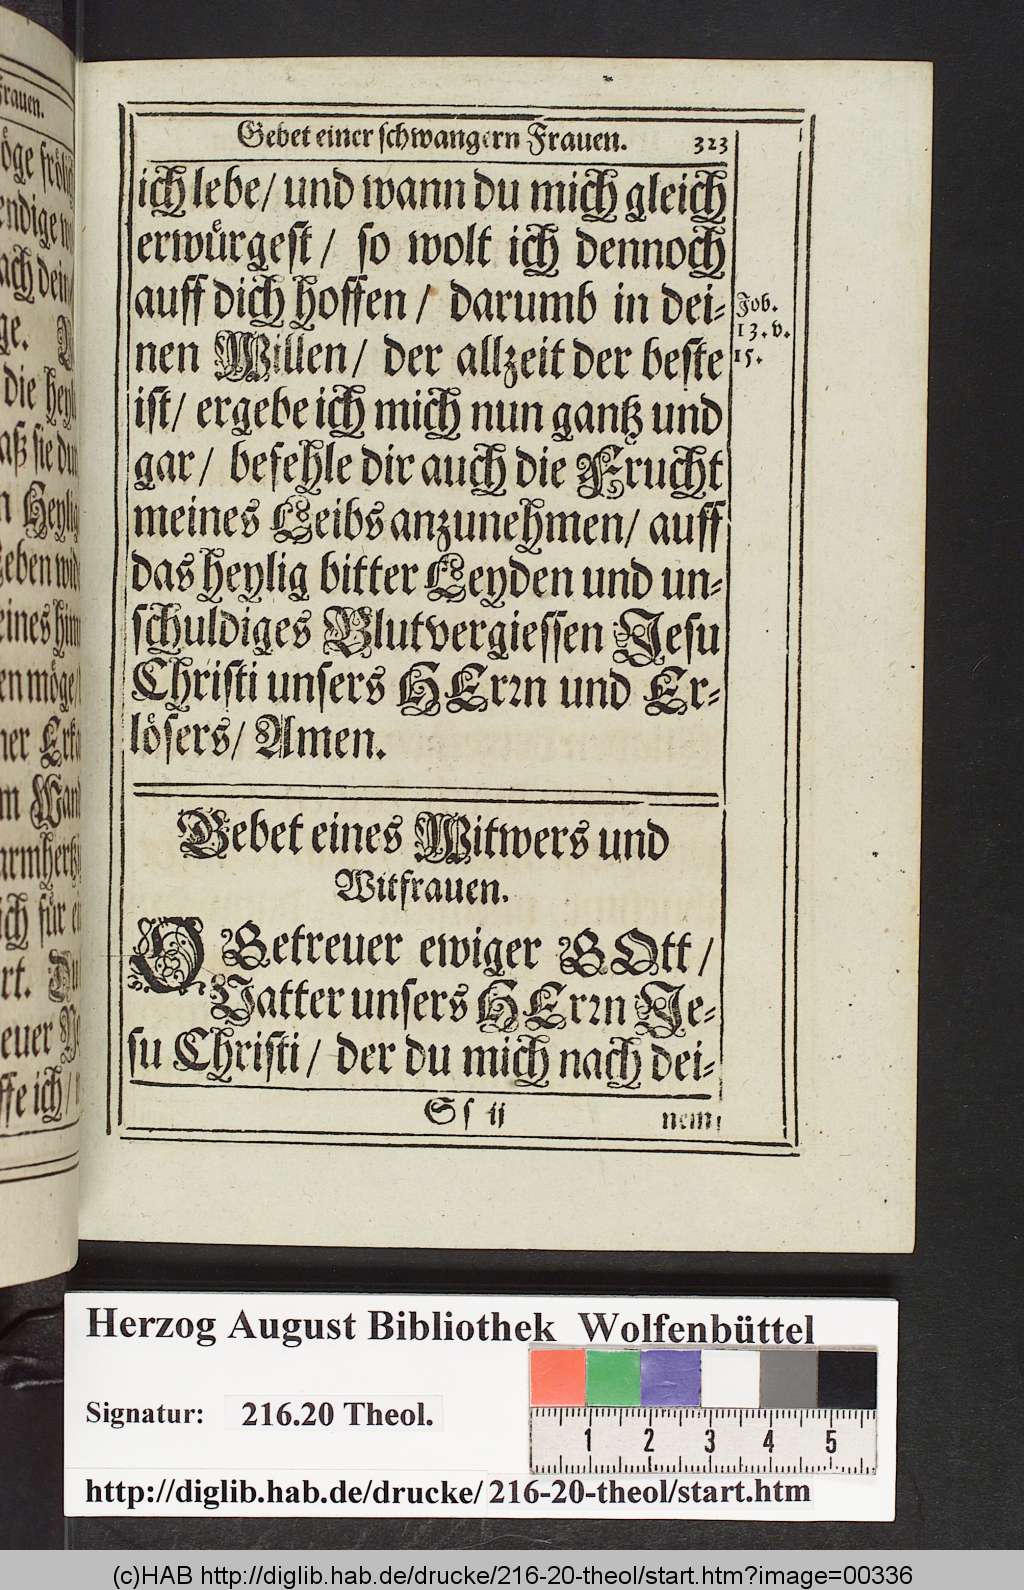 Frauen.
Gebet einer schwangern Frauen. 323
ich lebe/ und wann du mich gleich
erwürgest/ so wolt ich dennoch
auff dich hoffen/ darumb in dei-
nen Willen/ der allzeit der beste
ist/ ergebe ich mich nun gantz und
gar/ befehle dir auch die Frucht
meines Leibs anzunehmen/ auff
das heylig bitter Leyden und un-
schuldiges Blutvergiessen Jesu
Christi unsers HErrn und Er-
lösers/ Amen.
Job.
13. v.
15.
Gebet eines Witwers und
Witfrauen.
O Getreuer ewiger GOtt/
Vatter unsers HErrn Je-
su Christi/ der du mich nach dei-
Ss ij nem
Herzog August Bibliothek Wolfenbüttel
Signatur: 216.20 Theol.
1 2 3 4 5
http://diglib.hab.de/drucke/216-20-theol/start.htm
(c)HAB http://diglib.hab.de/drucke/216-20-theol/start.htm?image=00336